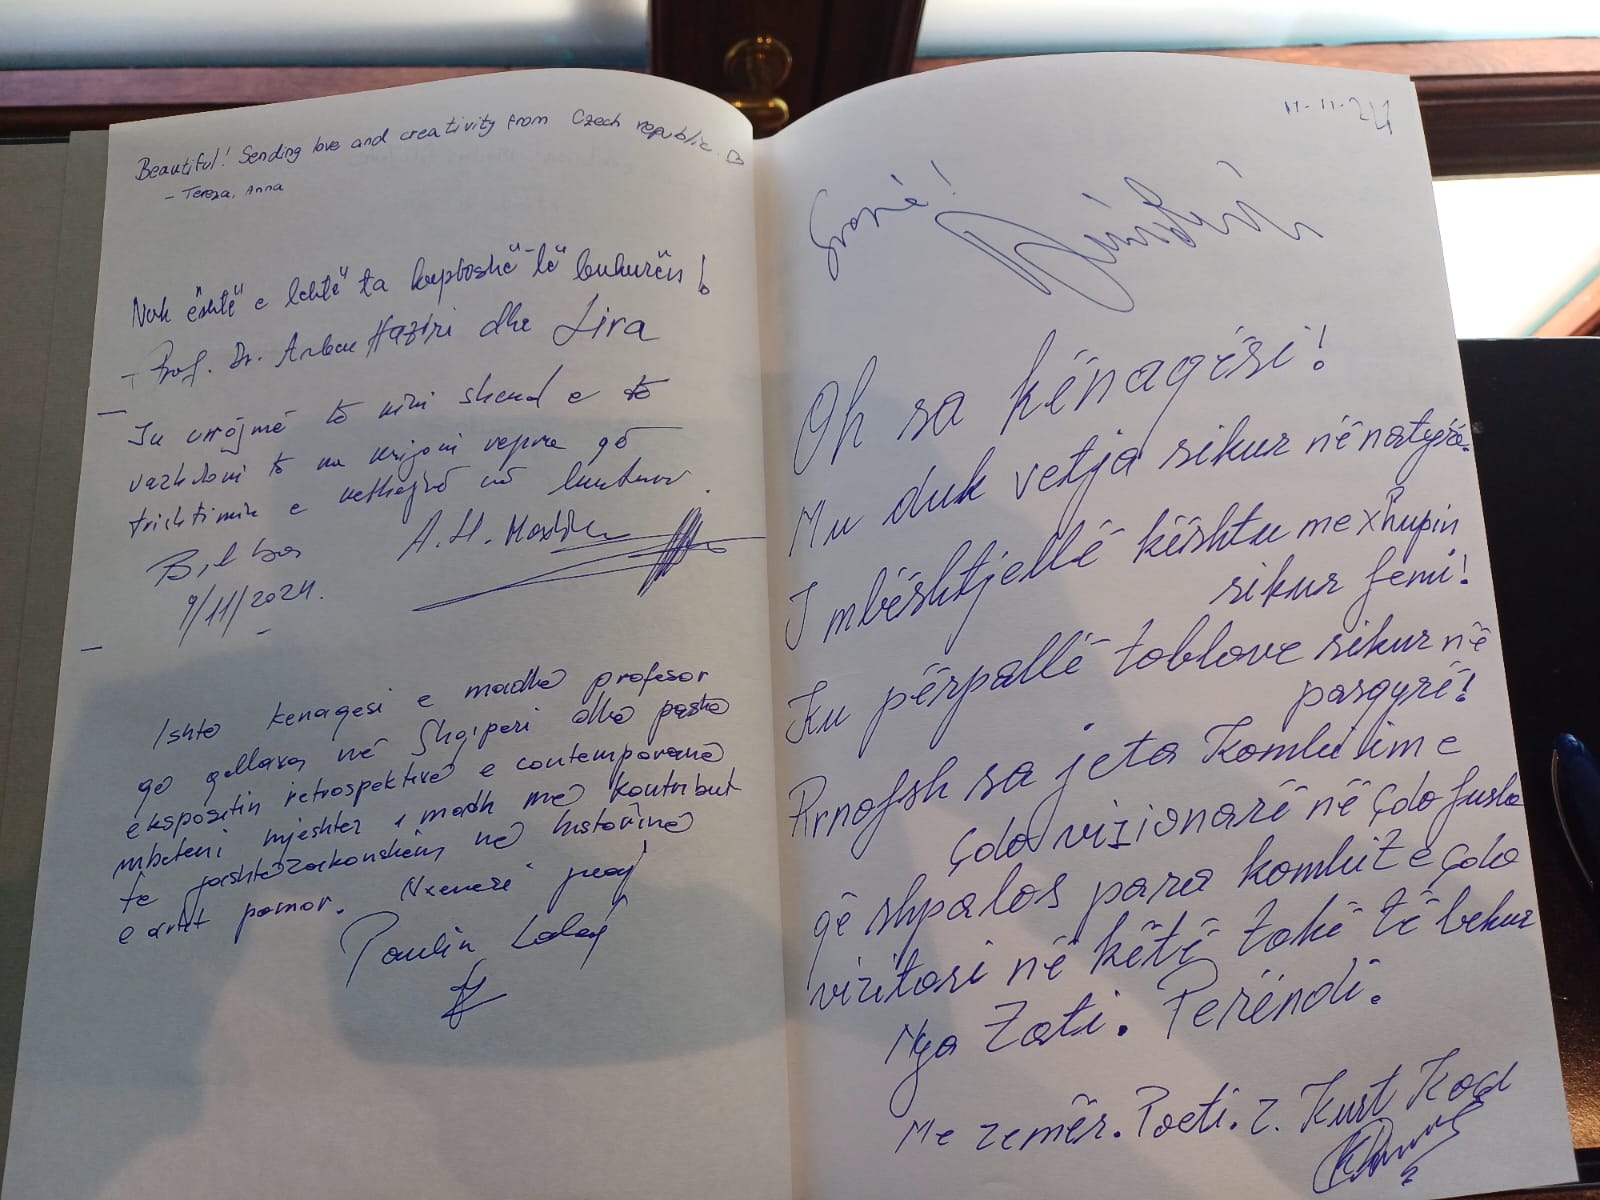 Beautiful! Sending love and creativity from Czech republic.
- Tereza, Anna
Nuk është e lehtë ta kuptoshë të bukurën!
- Prof. Dr. Arben Haziri dhe Lira
Ju urojmë të kini shend e të
vazhdoni të na krijoni vepra që
trishtimin e
A.H.
9/11/2024.
Ishte kenagesi e madhe profesor
që në Shqiperi dhe pashe
ekspozitin retrospektivë e contemporane
mbeteni mjeshter i madh me kontribut
te jashtëzakonshëm në historinë
e artit pamor. Nxenesi juaj
Paulin
11-11-24
Oh sa kënaqësi!
Mu duk vetja sikur në natyrë.
I mbështjellë kështu me xhupin
sikur femi!
Ku përpallë tablove sikur në
pasqyrë!
Rrnofsh sa jeta Kombi im e
çdo vizionarë në çdo fushë
që shpalos para kombit e çdo
vizitori në këtë tokë të bekur
Nga Zoti. Perëndi.
Me zemër. Poeti. z. Kurt